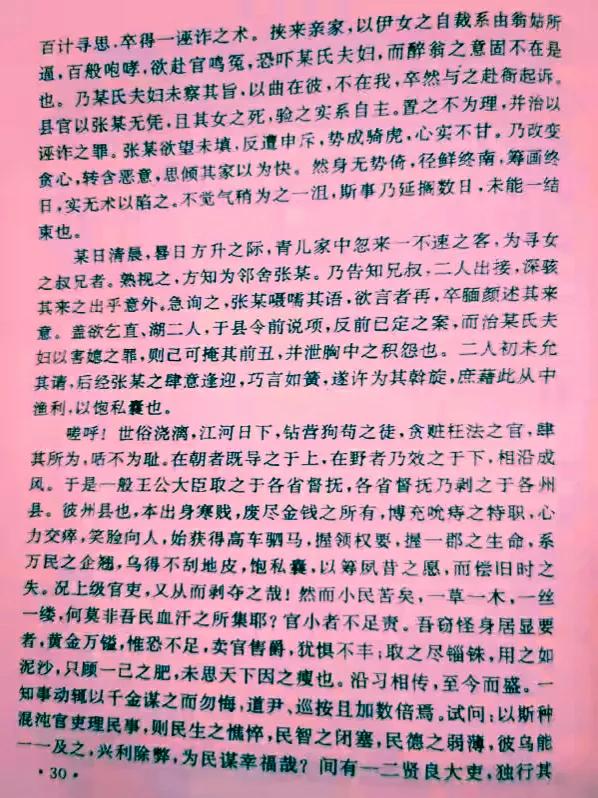 百计寻思,卒得一诬诈之术。挟来亲家,以伊女之自裁系由翁姑所
逼,百般咆哮,欲赴官鸣冤,恐吓某氏夫妇,而醉翁之意固不在是
也。乃某氏夫妇未察其旨,以曲在彼,不在我,卒然与之赴衙起诉。
县官以张某无凭,且其女之死,验之实系自主。置之不为理,并治以
诬诈之罪。张某欲望未填,反遭申斥,势成骑虎,心实不甘。乃改变
贪心,转含恶意,思倾其家以为快。然身无势倚,径鲜终南,筹画终
日,实无术以陷之。不觉气稍为之一沮,斯事乃延搁数日,未能一结
束也。
某日清晨,晷日方升之际,青儿家中忽来一不速之客,为寻女
之叔兄者。熟视之,方知为邻舍张某。乃告知兄叔,二人出接,深骇
其来之出乎意外。急询之,张某嗫嚅其语,欲言者再,卒腼颜述其来
意。盖欲乞直、湖二人,于县令前说项,反前已定之案,而治某氏夫
妇以害媳之罪,则己可掩其前丑,并泄胸中之积怨也。二人初未允
其请,后经张某之肆意逢迎,巧言如簧,遂许为其斡旋,庶藉此从中
渔利,以饱私囊也。
嗟呼!世俗浇漓,江河日下,钻营狗苟之徒,贪赃枉法之官,肆
其所为,恬不为耻。在朝者既导之于上,在野者乃效之于下,相沿成
风。于是一般王公大臣取之于各省督抚,各省督抚乃剥之于各州
县。彼州县也,本出身寒贱,废尽金钱之所有,博充吮痔之特职,心
力交瘁,笑脸向人,始获得高车驷马,握领权要,握一郡之生命,系
万民之企翘,乌得不刮地皮,饱私囊,以筹夙昔之愿,而偿旧时之
失。况上级官吏,又从而剥夺之哉!然而小民苦矣,一草一木,一丝
一缕,何莫非吾民血汗之所集耶?官小者不足责。吾窃怪身居显要
者,黄金万镒,惟恐不足,卖官售爵,犹惧不丰;取之尽锱铢,用之如
泥沙,只顾一己之肥,未思天下因之瘦也。沿习相传,至今而盛。一
知事动辄以千金谋之而勿悔,道尹、巡按且加数倍焉。试问:以斯种
混沌官吏理民事,则民生之憔悴,民智之闭塞,民德之弱薄,彼乌能
一一及之,兴利除弊,为民谋幸福哉?间有一二贤良大吏,独行其
·30·